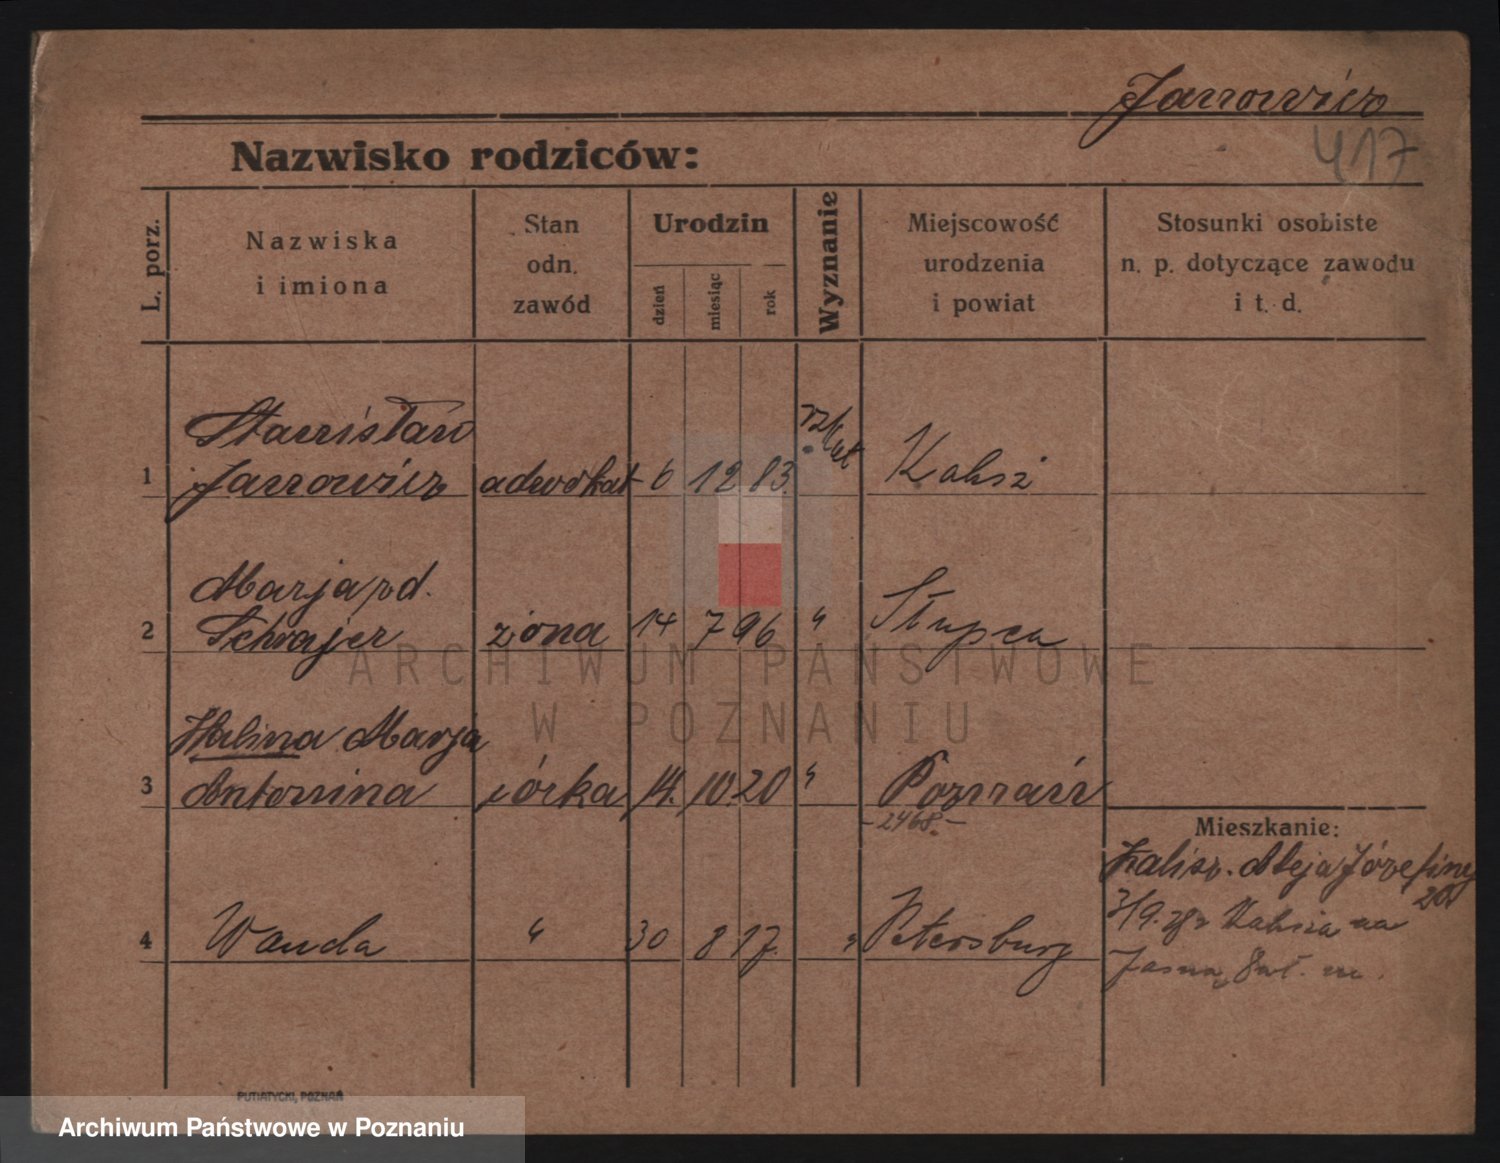 Janowicz
417
Nazwisko rodziców:
L. porz.
Nazwiska
i imiona
Stan
odn.
zawód
Urodzin
dzień
miesiąc
rok
Wyznanie
Miejscowość
urodzenia
i powiat
Stosunki osobiste
n. p. dotyczące zawodu
i t. d.
Stanisław
1 Janowicz adwokat 6 12 83 Kalisz
Marja
2 żona 14 7 96 " Słupca
Halina Marja
3 Antonina córka 14. 10 20 " Poznań
-2468.-
Mieszkanie:
Kalisz. Aleja Józefiny
20
4 Wanda " 30 8 17. " Petersburg
Jasną
PUTIATYCKI, POZNAŃ
ARCHIWUM PAŃSTWOWE
W POZNANIU
Archiwum Państwowe w Poznaniu